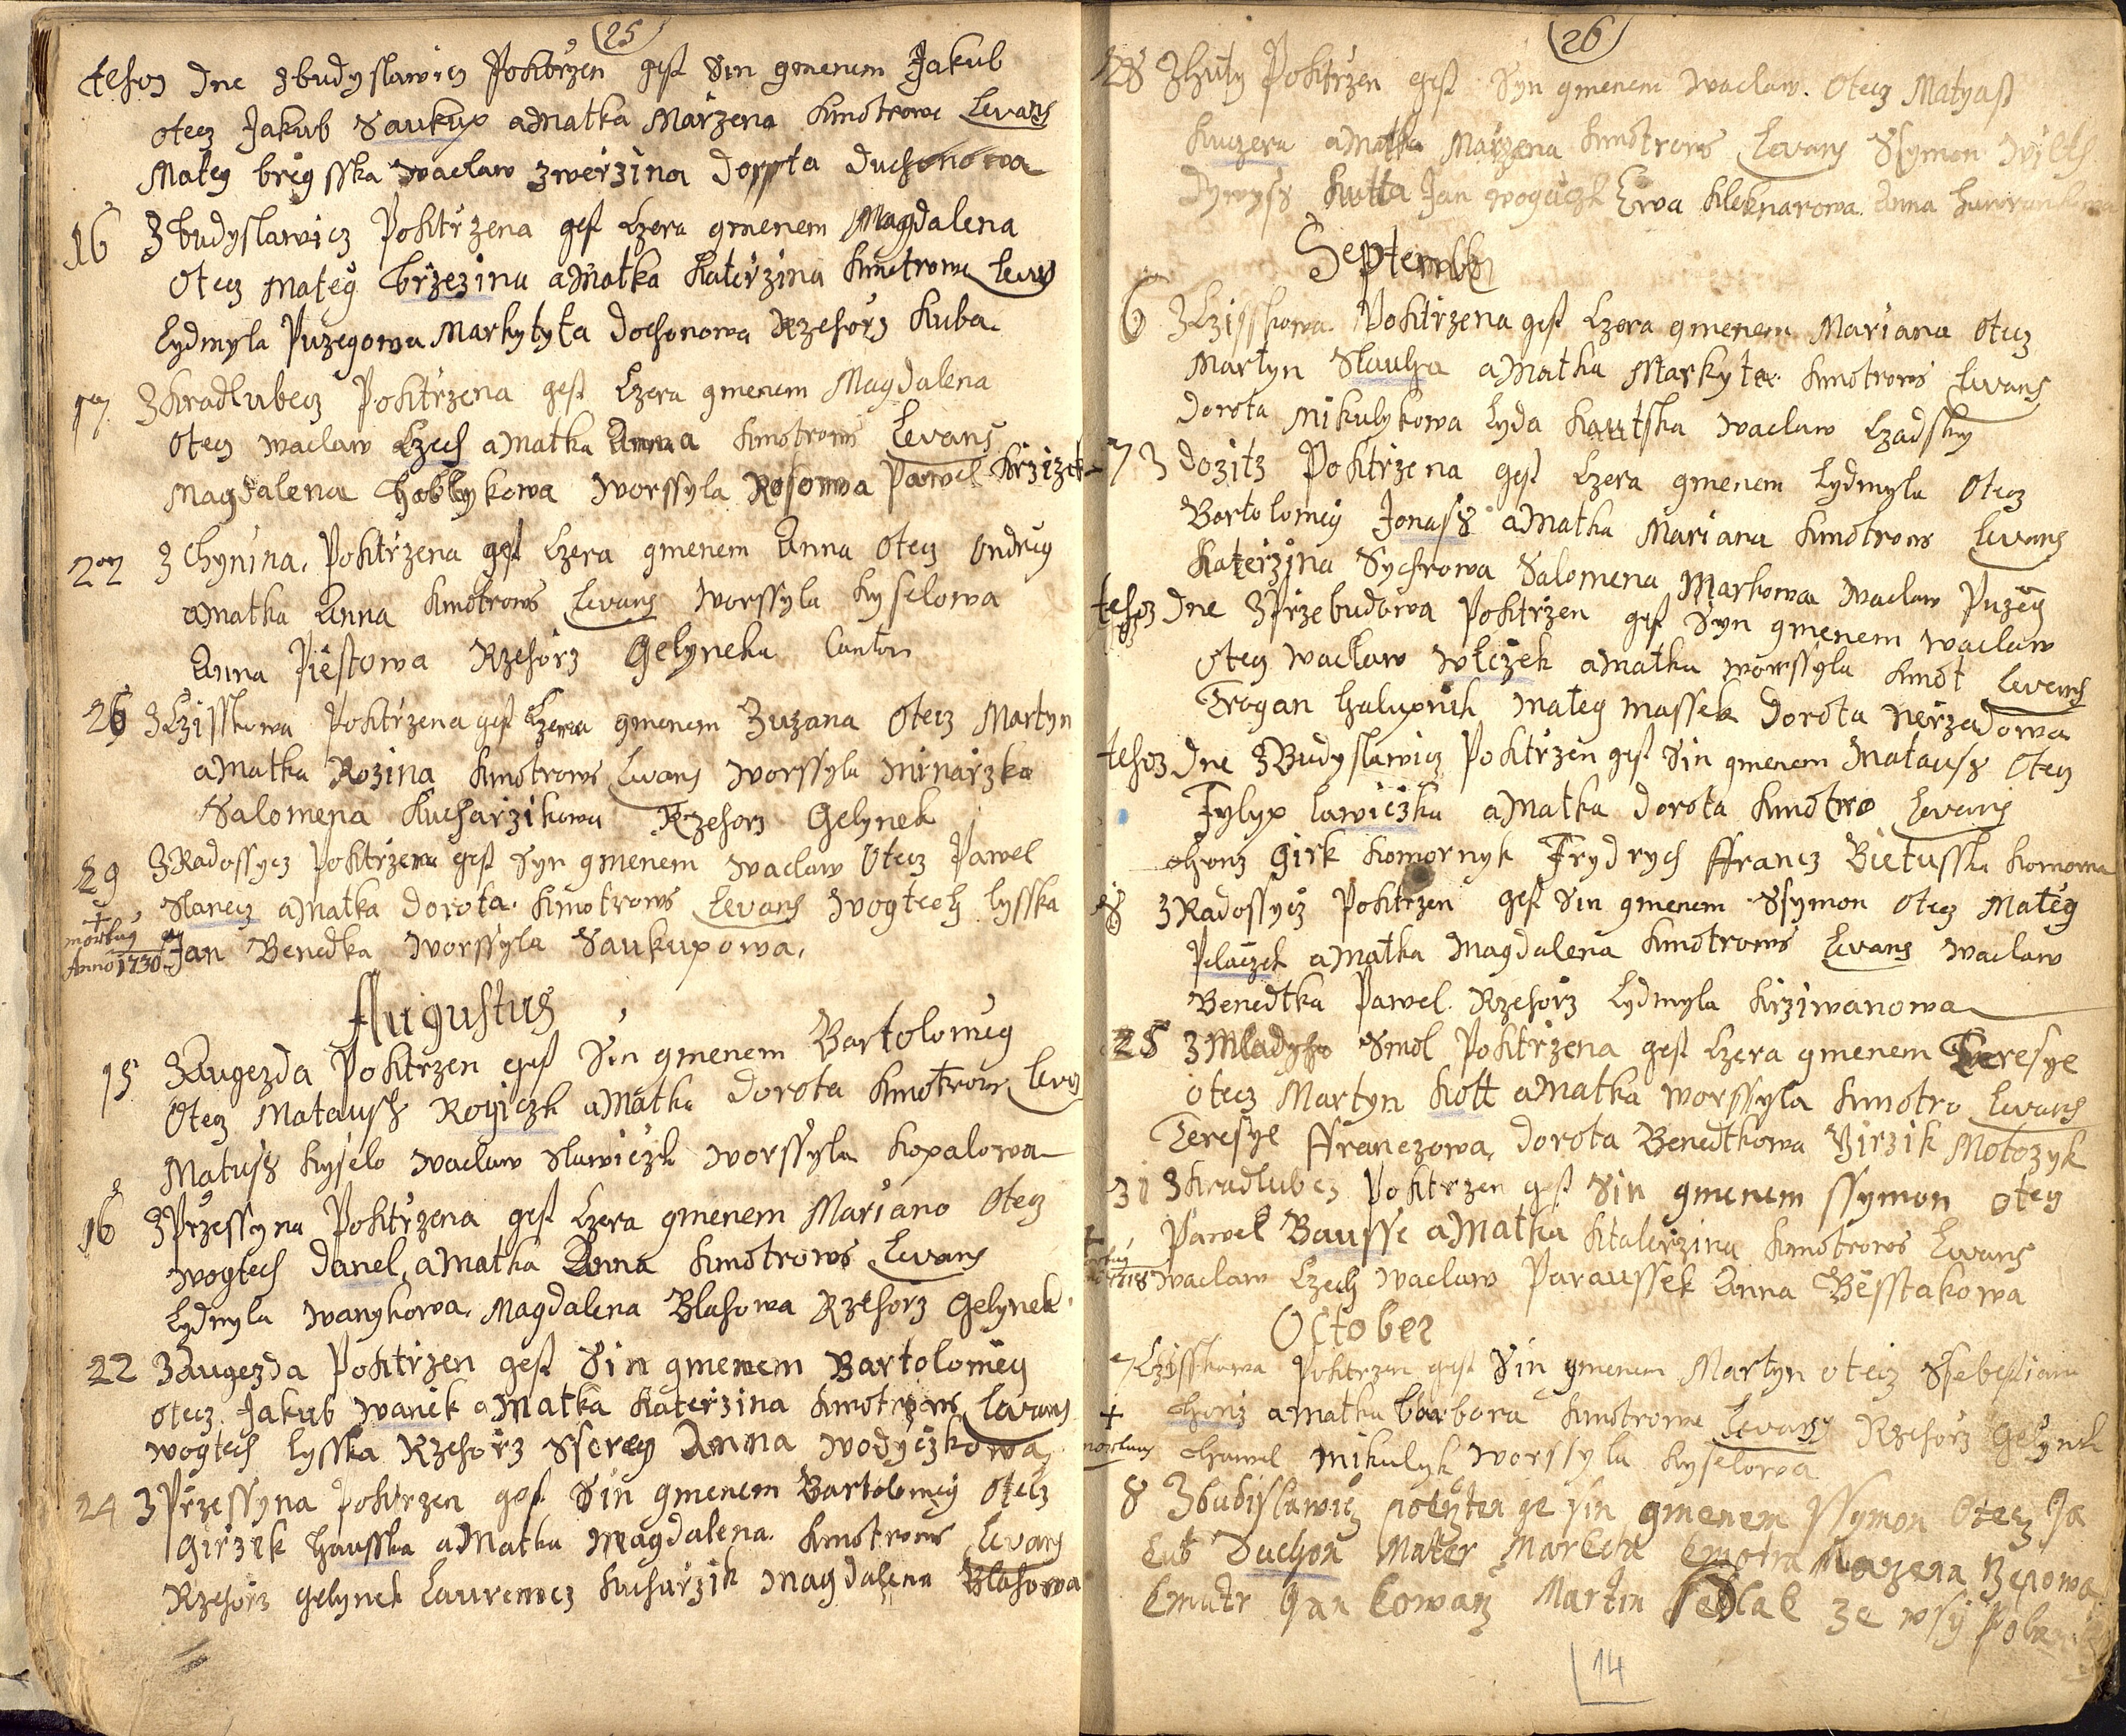 25
tehoz dne zbudyslawicz Poktržen gest Sin gmenem Jakub
otecz Jakub Saukup a Matka Maržena kmotrowe Levans
Mateg brég sska Waclaw zwéržina dorota duchonowa
16 Zbudyslawicz Poktržena gest Lzera gmenem Magdalena
Otecz Mateg bržezina a Matka Katéržina kmotrowe Levans
Lydmyla Puzegowa Markytyta dochonowa Ržehorž Kuba.
17 Zkradlubecz Poktržena gest Lzera gmenem Magdalena
Otecz waclaw Lzech a Matka Anna kmotrows Levans
Magdalena habltykowa worssyla Rosowa Pawel kržizek
22 Z chynina. Poktržena gest Lzera gmenem Anna Otecz Ondrég
a Matka Anna kmotrows Levans Worssyla kyselowa
Anna Piéstowa Ržehorž Gelyneku Cantor
26 Z Lzisskowa Poktržena gest Lzera gmenem Zuzana Otecz Martyn
a Matka Rozina kmotrows Levans worssyla
Salomena Kucharžikowa Ržehorž Gelynek
29 Z Radossycz Poktržen gest Syn gmenem waclaw Otecz Pawel
Stanecz a Matka dorota. kmotrows Levans wogtech lysska
+ mortuus Anno 1730 Jan Benedka worssyla Saukupowa.
Augustus
15 Z Augezda Poktržen gest Sin gmenem Bartolomég
Otecz Matausch Royiczk a Matka Dorota kmotrow Levans
Matuss kyselo waclaw Slawiczk worssyla kopalowa
16 Z Pržessyna Poktržena gest Lzera gmenem Mariano Otecz
wogtech danel, a Matka Anna kmotrows Levans
Lydmyla wanykowa. Magdalena Blahowa Ržehorž Gelynek.
22 Z Augezda Poktržen gest Sin gmenem Bartoloméy
otecz Jakub wanék a Matka Katéržina kmotrows Levans
wogtech lysska Ržehorž Anna wodyczkowa
24 Z Pržessyna Pokržen gest Sin gmenem Bartoloméj Otecz
Giržek hausska a Matka Magdalena. kmotrows Levans
Ržehorž gelynek Laurenncz kucharžik Magdalena Blahowa
26
28 Z huty Pokržen gest Syn gmenem waclaw. Otecz Matyast
kuczera a Matka Maržena kmotrows Levans Ssymon
Dywyss Kutta Jan wogaczk Ewa kleknarowa. Anna
September
6 Z Lzisskowa. Pokržena gest Lzera gmenem Mariana Otecz
Martyn Slauha a Matka Markyta kmotrows Levans
dorota mikulykowa Lyda kautska waclaw Lzadsky
7 Z dozitz Pokržena gest Lzera gmenem Lydmyla Otecz
Bartoloméj Jonass a Matka Mariana kmotrows Levans
Kateržina Sychrowa Salomena Markowa waclaw Puzég
tehoz dne Z Pržebudowa Pokržen gest Syn gmenem waclaw
Otecz waclaw wlczek a Matka worssyla kmot Levans
Trogan halupnik mateg massek dorota neržadowa
tehoz dne Z Budyslawicz Pokržen gest Sin gmenem Matauss Otecz
Fylyp lawiczku a Matka dorota kmotro Levans
honz Girk komornyk Frydrych ffrancz Bietusska
8 Z Radossycz Pokržen gest Sin gmenem Ssymon Otecz Matég
Plaček a Matka Magdalena kmotrows Levans waclaw
Benedtka Pawel. Ržehorž Lydmyla kržiwanowa
25 Z Mladyho Smol Pokržena gest Lzera gmenem Teresye
otecz Martyn kott a Matka worssyla kmotro Levans
Teresye ffranczowa, dorota Benedtkowa Jiržik Motozyk
31 Z kradlubcz Pokržen gest Sin gmenem ssymon otecz
Pawel Bausse a Matka Kateržina kmotrows Levans
+ waclaw Lzech waclaw Paraussek Anna Bésstakowa
October
7 Lzisskowa Pokržen gest Sin gmenem Martyn otecz Ssebestian
+ honz a Matka barbora kmotrowe Levans Ržehorž Gelynek
mortuus hawel mikulyk worssyla kyselowa
8 Zbudislawicz ge sin gmenem Ssymon Otecz Ja
kub Duchon Mater Marketa kmotra Mazena
kmutr Gan kowarz Martin sedlak ze wsy
14